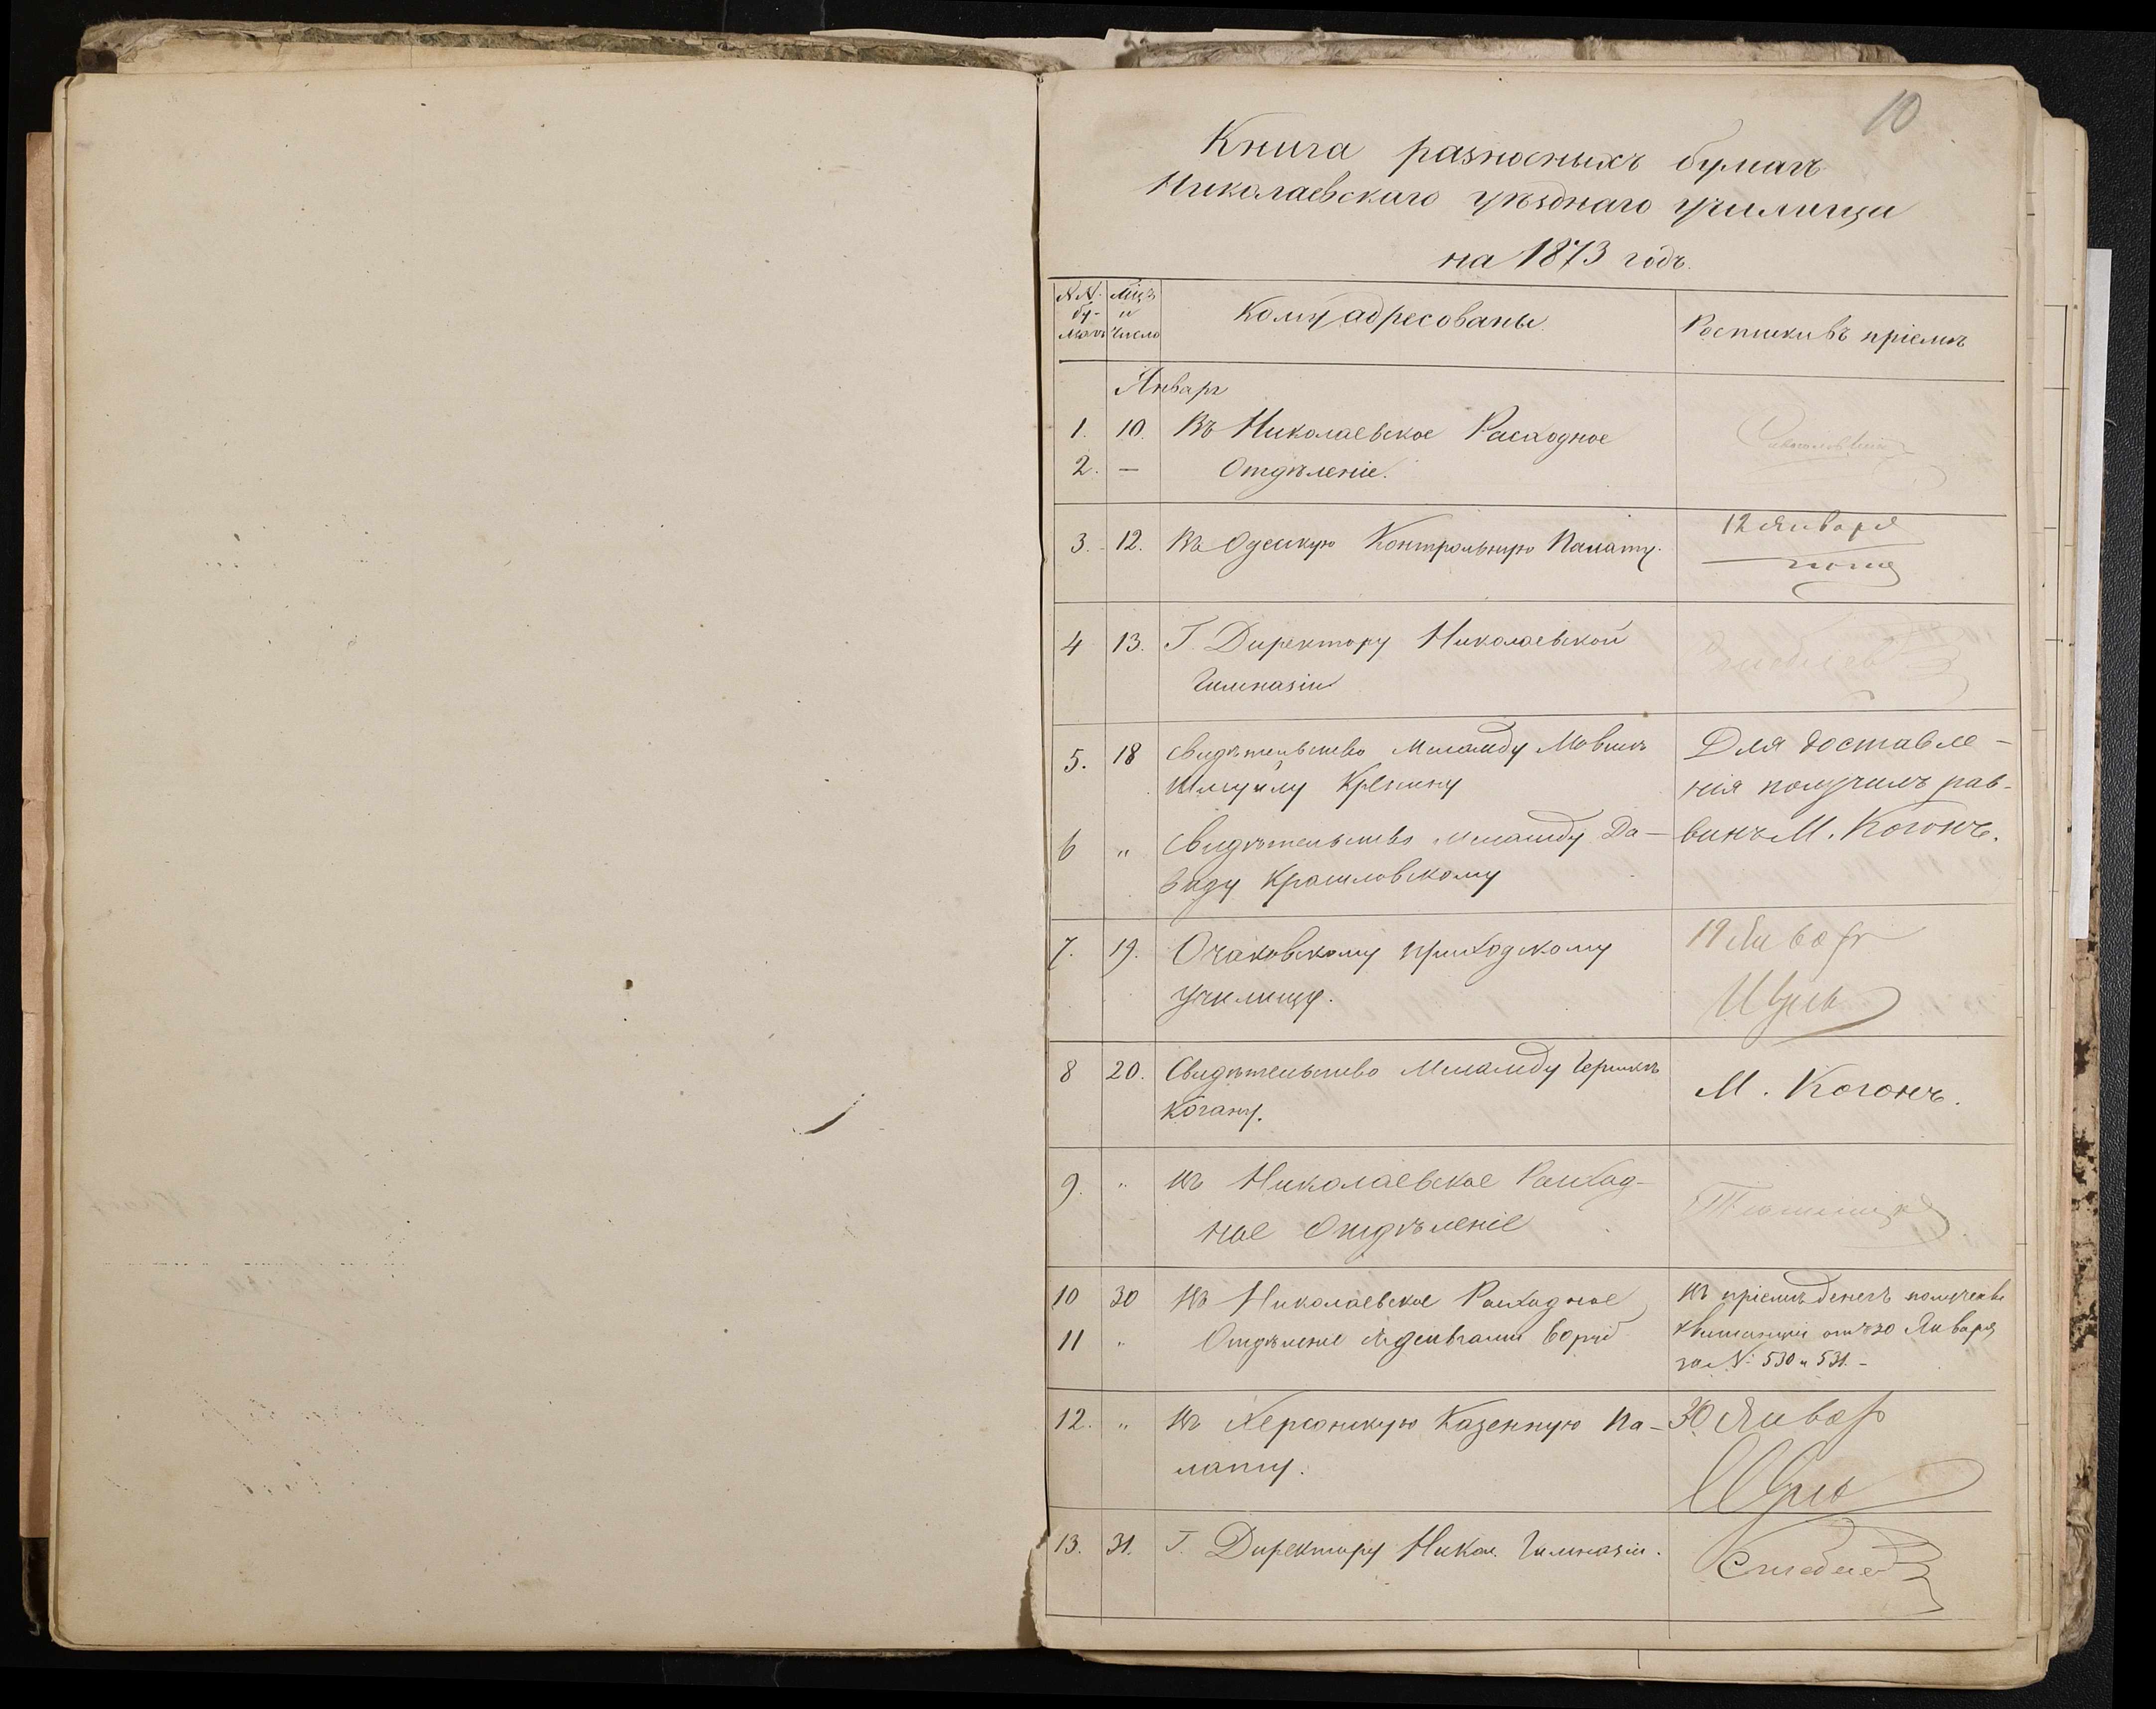 10
Книга разносныхъ бумагъ
Николаевскаго уѣзднаго училища
на 1873 годъ.
№№ бумагъ
Мцъ и число
Кому адресованы.
Росписки въ пріемѣ
Январь
1. 10. Въ Николаевское Расходное
2. — Отдѣленіе.
3. 12. Въ Одесскую Контрольную Палату.
12 Января
4 13. Г. Директору Николаевской
Гимназіи
5. 18 Свидѣтельство Меламду Мовшѣ
Шмуилу
6 " Свидѣтельство Меламду Да-
виду Красиловскому
Для доставле-
нія получилъ рав-
винъ М. Когонъ.
7. 19. Очаковскому приходскому
училищу.
19 Январ
8 20. Свидѣтельство Меламду Гершкѣ
Когану.
М. Когонъ.
9. " Въ Николаевское Расход-
ное Отдѣленіе
10 30 Въ Николаевское Расходное
11 " Отдѣленіе
Въ пріемѣ денегъ получены
квитанціи отъ 30 Января
за № 530 и 531.-
12. " Въ Херсонскую Казенную Па-
лату.
30 Январ
13. 31. Г. Директору Никол. Гимназіи.